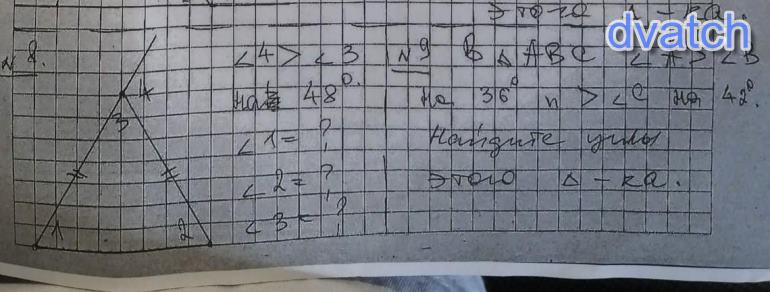 этого Δ-ка.
dvatch
N8.
∠4 > ∠3
на 48°.
∠1 = ?
∠2 = ?
∠3 = ?
4
3
1
2
N9 В ΔABC ∠A > ∠B
на 36° и > ∠C на 42°
Найдите углы
этого Δ-ка.